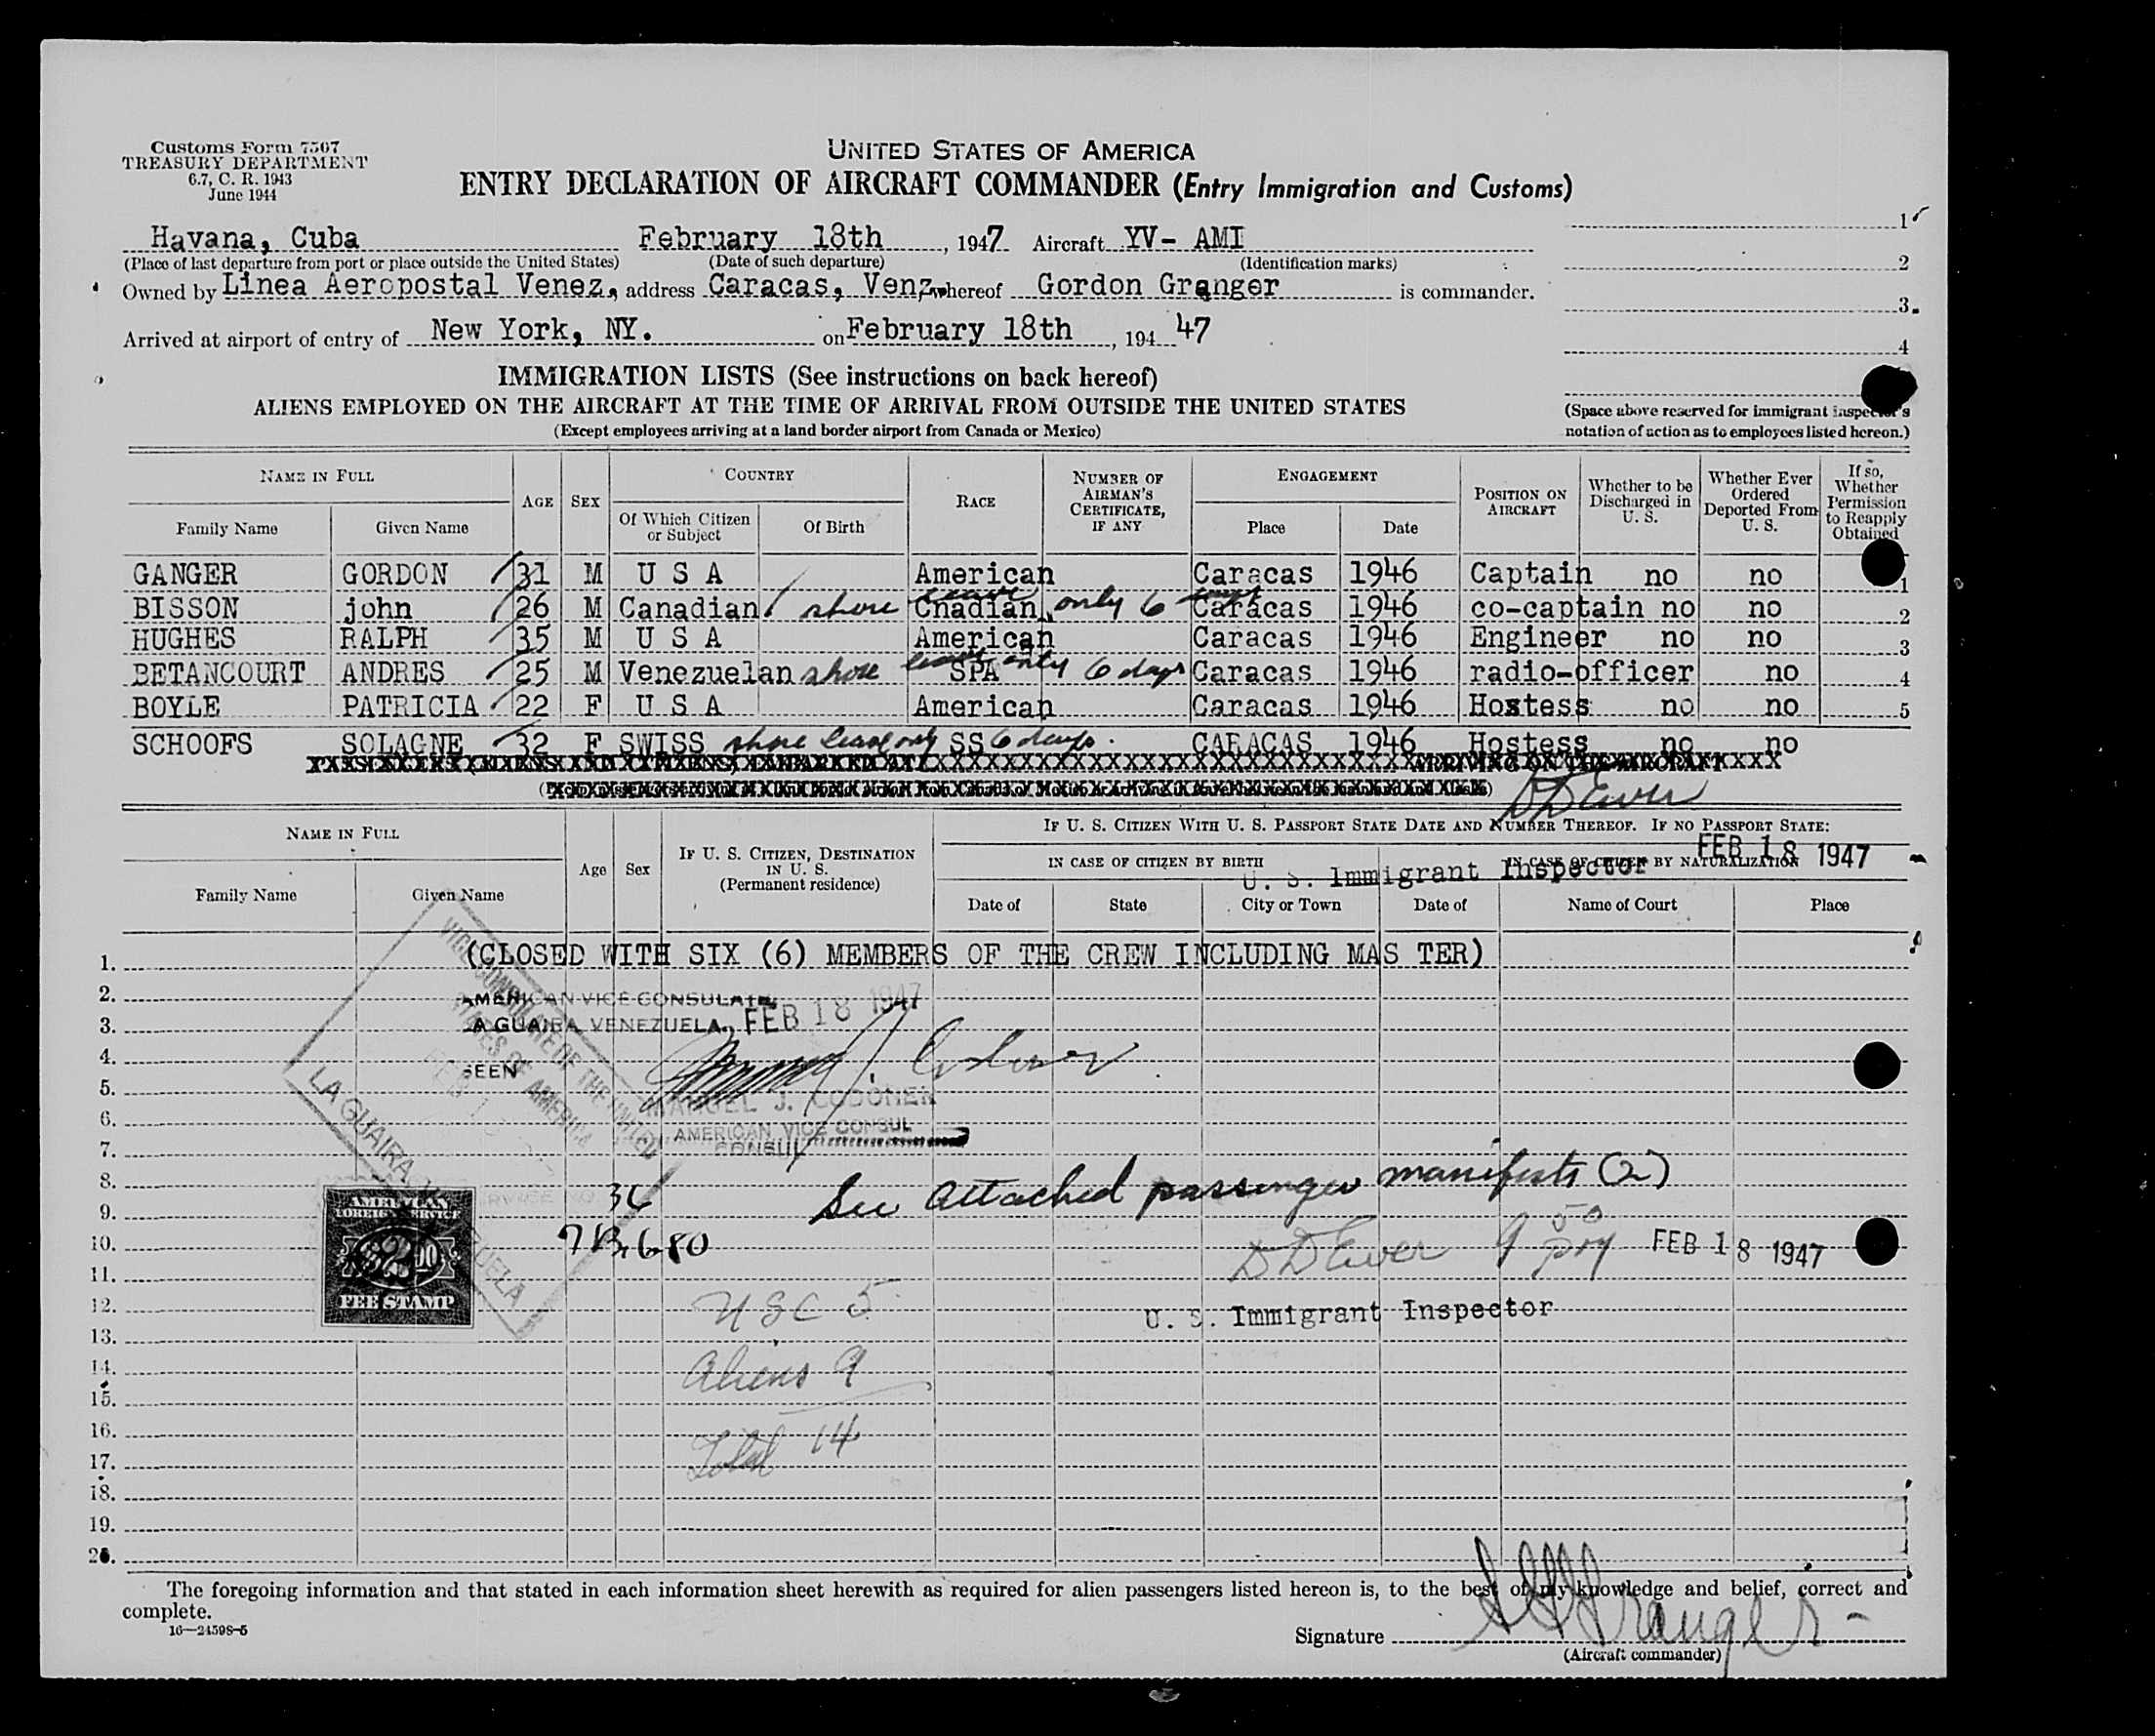 Customs Form 7507
TREASURY DEPARTMENT
6.7, C. R. 1943
June 1944
UNITED STATES OF AMERICA
ENTRY DECLARATION OF AIRCRAFT COMMANDER (Entry Immigration and Customs)
Havana, Cuba February 18th, 1947 Aircraft YV- AMI
(Place of last departure from port or place outside the United States) (Date of such departure) (Identification marks)
Owned by Linea Aeropostal Venez, address Caracas, Venz, whereof Gordon Granger is commander.
Arrived at airport of entry of New York, NY. on February 18th, 194 47
1
2
3
4
(Space above reserved for immigrant inspector's
notation of action as to employees listed hereon.)
IMMIGRATION LISTS (See instructions on back hereof)
ALIENS EMPLOYED ON THE AIRCRAFT AT THE TIME OF ARRIVAL FROM OUTSIDE THE UNITED STATES
(Except employees arriving at a land border airport from Canada or Mexico)
NAME IN FULL AGE SEX COUNTRY RACE NUMBER OF AIRMAN'S CERTIFICATE, IF ANY ENGAGEMENT POSITION ON AIRCRAFT Whether to be Discharged in U. S. Whether Ever Ordered Deported From U. S. If so, Whether Permission to Reapply Obtained
Family Name Given Name Of Which Citizen or Subject Of Birth Place Date
GANGER GORDON 31 M U S A American Caracas 1946 Captain no no 1
BISSON john 26 M Canadian shore leave Cnadian only 6 days Caracas 1946 co-captain no no 2
HUGHES RALPH 35 M U S A American Caracas 1946 Engineer no no 3
BETANCOURT ANDRES 25 M Venezuelan shore leave only SPA 6 days Caracas 1946 radio-officer no 4
BOYLE PATRICIA 22 F U S A American Caracas 1946 Hostess no no 5
SCHOOFS SOLAGNE 32 F SWISS shore leave only SS 6 days. CARACAS 1946 Hostess no no
ARRIVING ON THE AIRCRAFT
D D Ewer
NAME IN FULL Age Sex IF U. S. CITIZEN, DESTINATION IN U. S. (Permanent residence) IF U. S. CITIZEN WITH U. S. PASSPORT STATE DATE AND NUMBER THEREOF. IF NO PASSPORT STATE:
FEB 18 1947
IN CASE OF CITIZEN BY BIRTH IN CASE OF CITIZEN BY NATURALIZATION
U. S. Immigrant Inspector
Family Name Given Name Date of State City or Town Date of Name of Court Place
1. (CLOSED WITH SIX (6) MEMBERS OF THE CREW INCLUDING MAS TER)
2. AMERICAN VICE CONSULATE
3. LA GUAIRA VENEZUELA, FEB 18 1947
4.
SEEN
5.
MANUEL J. CODONER
6.
AMERICAN VICE CONSUL
7. CONSUL
VICE CONSULATE OF THE UNITED
STATES OF AMERICA
LA GUAIRA, VENEZUELA
8. See attached passenger manifests (2)
9. 36
10. 7B,680 D D Ewer 9 50 pm FEB 18 1947
AMERICAN
FOREIGN SERVICE
$2.00
FEE STAMP
11.
12. USC 5 U. S. Immigrant Inspector
13.
14. Aliens 9
15.
16. Total 14
17.
18.
19.
20.
The foregoing information and that stated in each information sheet herewith as required for alien passengers listed hereon is, to the best of my knowledge and belief, correct and
complete.
16—24598-5
Signature
(Aircraft commander)